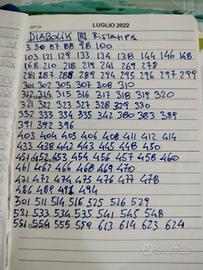 LUGLIO 2022
DIABOLIK R RISTAMPA
3 50 87 88 98 100
103 121 129 133 134 138 144 146 148
168 210 218 241 269 278
281 287 288 289 294 295 296 297 299
301 302 305 308
312 314 315 316 317 318 319 320
321 322 323 327 328 329 330
332 333 334 335 342 380 383 389
391 392 396
403 404 405 406 408 411 412 414
433 438 442 443 445 448 450
451 452 453 454 456 457 458 460
461 462 466 468 469 470
471 472 474 475 476 477 478
486 489 491 494
501 511 514 516 525 526 529
531 533 534 535 541 545 548
551 554 555 559 613 614 623 624